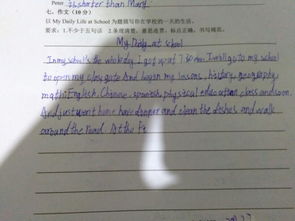 Peter is shorter than Mary.
七、作文(10分)
以 My Daily Life at School 为题描写你在学校的一天的生活。
要求:1.不少于五句话 2.条理清楚,意思连贯,标点正确,书写规范。
My Daily at school
In my school's the I get up at I will go to my school
to open my class And began my lessons, history, geography,
math, English, Chinese, spanish, physical education class and soon.
And just went home have dinner and clean the dishes and walk
around the road. At the